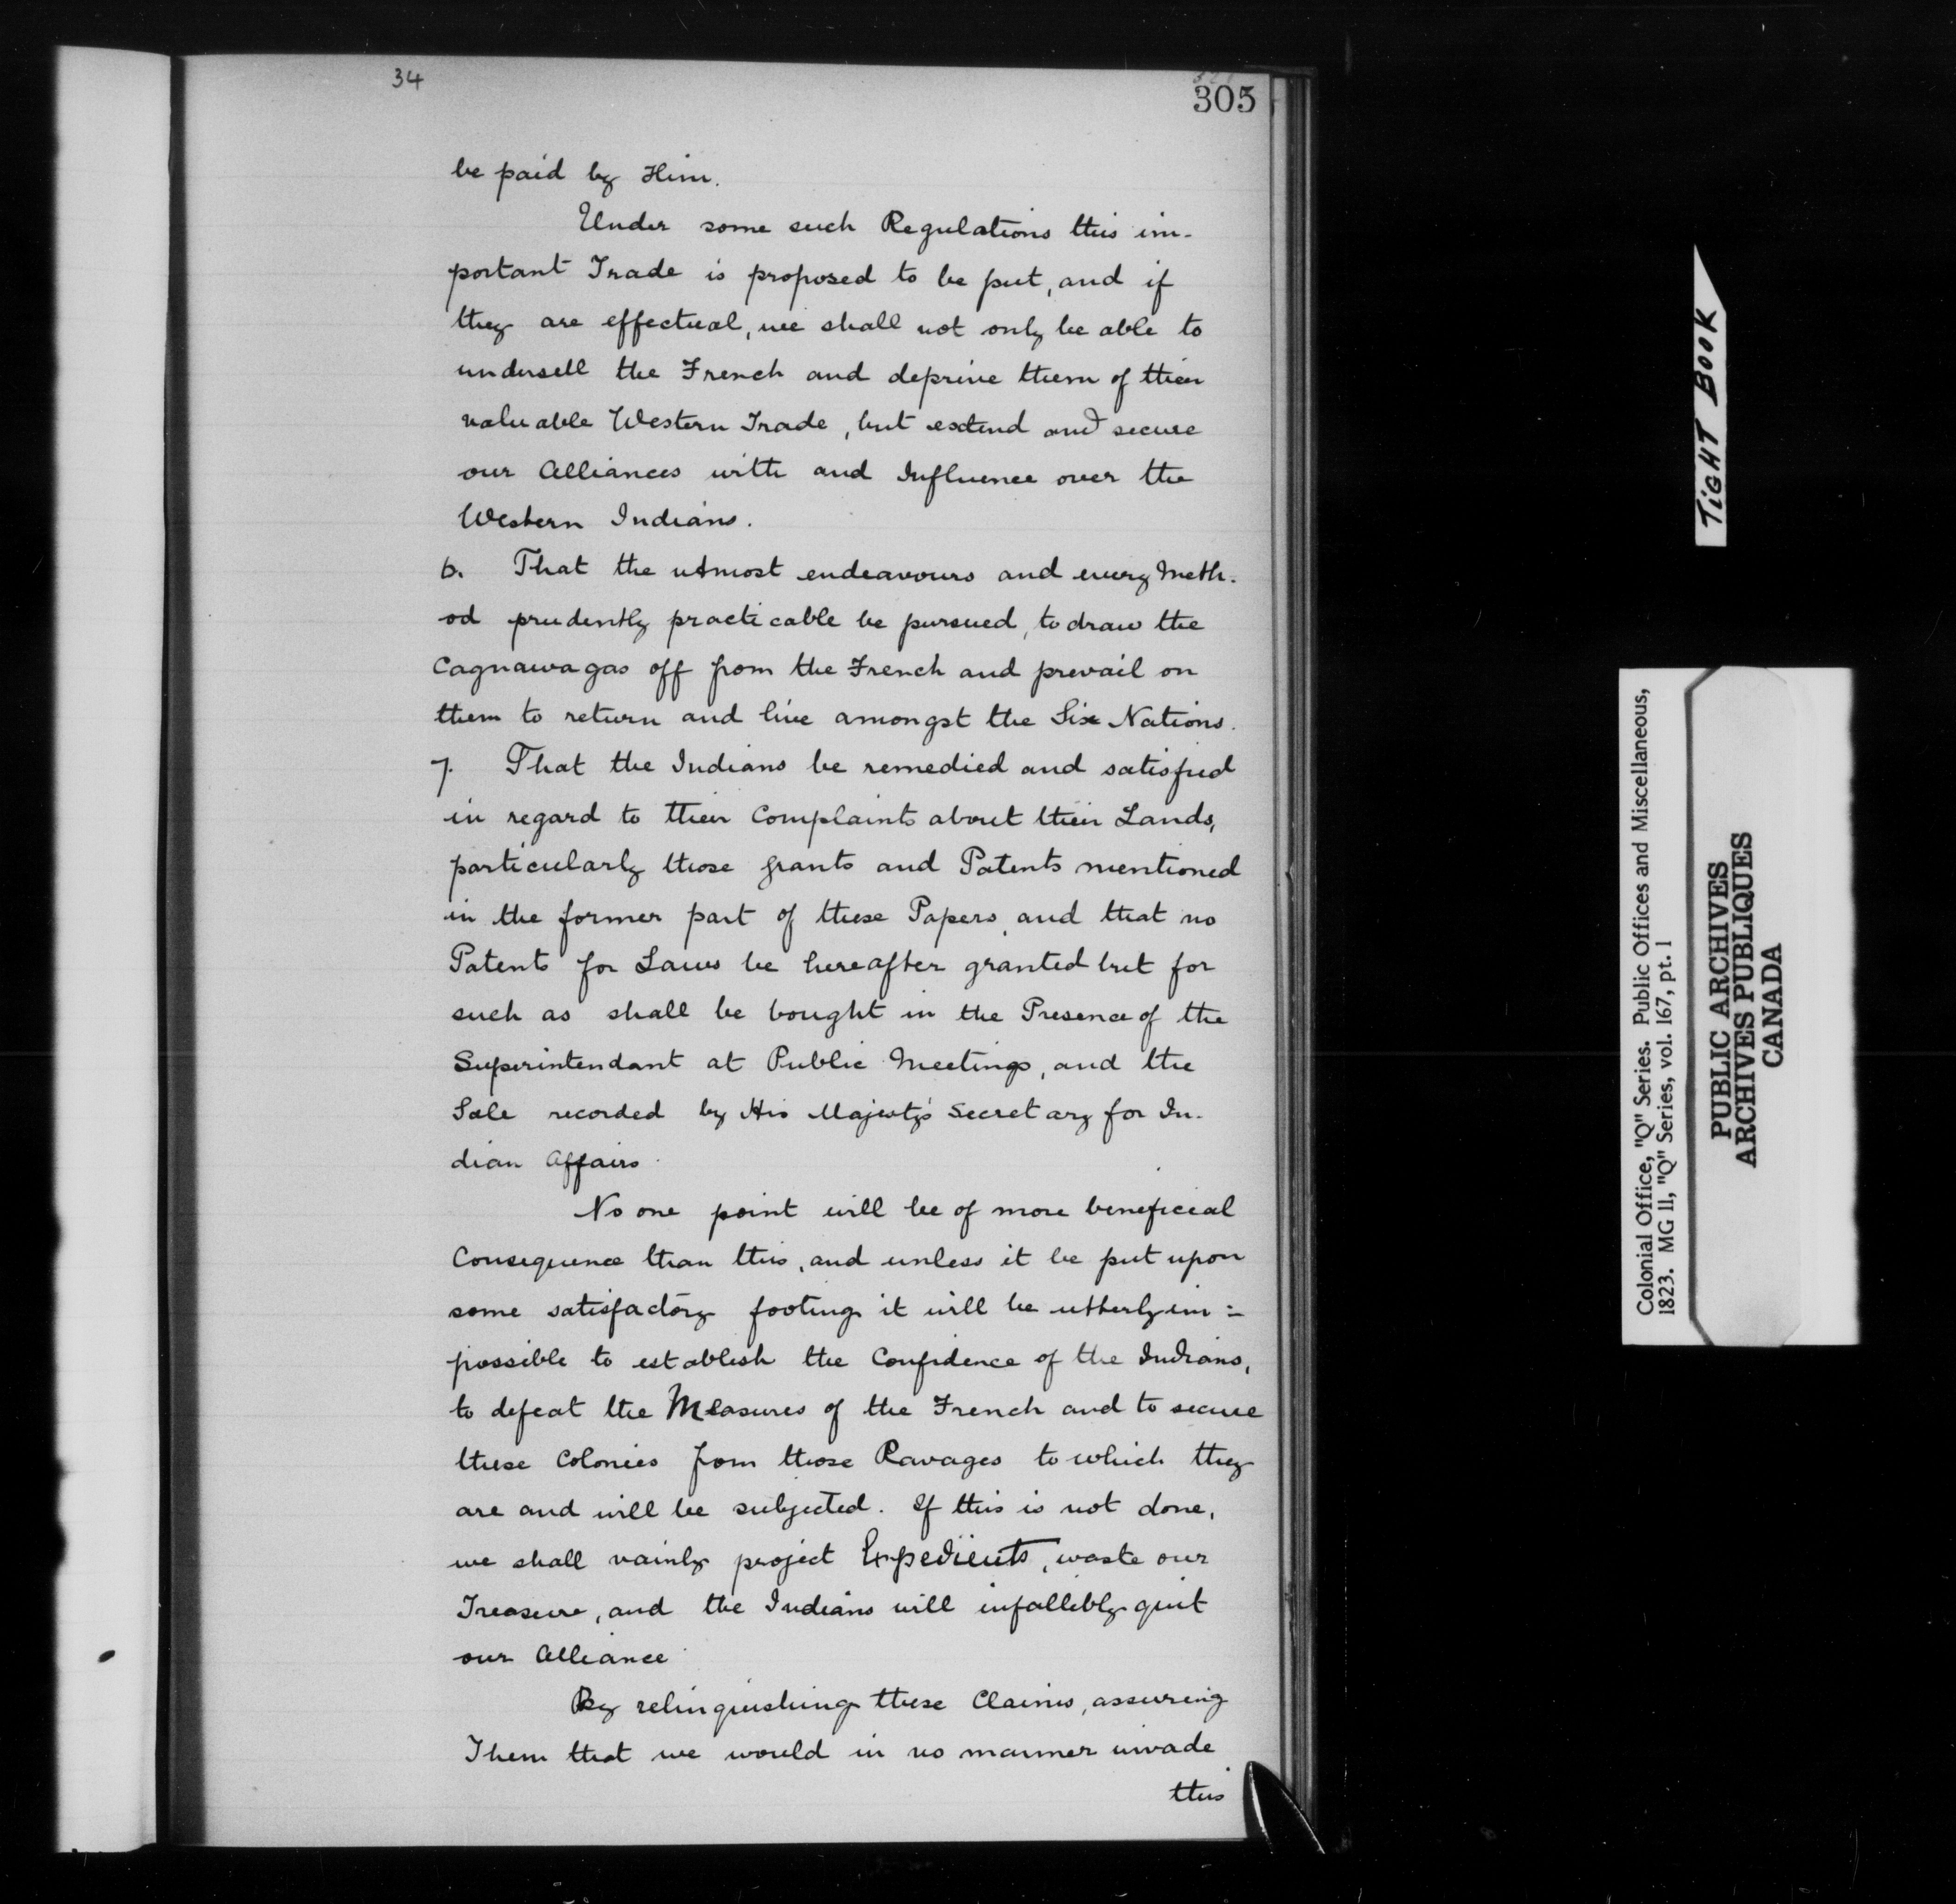 34
305
be paid by Him.
Under some such Regulations this im-
portant Trade is proposed to be put, and if
they are effectual, we shall not only be able to
undersell the French and deprive them of their
valuable Western Trade, but extend and secure
our Alliances with and Influence over the
Western Indians.
6. That the utmost endeavours and every Meth-
od prudently practicable be pursued, to draw the
Cagnawagas off from the French and prevail on
them to return and live amongst the Six Nations.
7. That the Indians be remedied and satisfied
in regard to their Complaints about their Lands,
particularly those grants and Patents mentioned
in the former part of these Papers, and that no
Patents for Laws be hereafter granted but for
such as shall be bought in the Presence of the
Superintendant at Public Meetings, and the
Sale recorded by His Majesty's Secretary for In-
dian Affairs.
No one point will be of more beneficial
Consequence than this, and unless it be put upon
some satisfactory footing it will be utterly im=
possible to establish the Confidence of the Indians,
to defeat the Measures of the French and to secure
these Colonies from those Ravages to which they
are and will be subjected. If this is not done,
we shall vainly project Expedients, waste our
Treasure, and the Indians will infallibly quit
our Alliance.
By relinquishing these Claims, assuring
Them that we would in no manner invade
this
TiGHT BOOK
Colonial Office, "Q" Series. Public Offices and Miscellaneous,
1823. MG 11, "Q" Series, vol. 167, pt. 1
PUBLIC ARCHIVES
ARCHIVES PUBLIQUES
CANADA